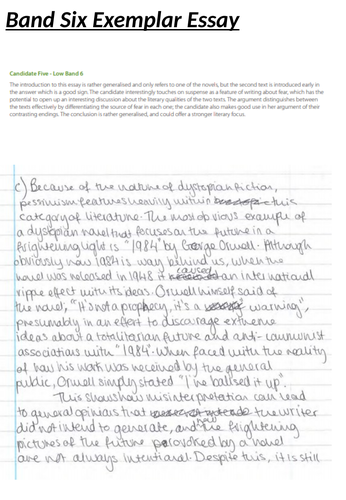 Band Six Exemplar Essay
Candidate Five - Low Band 6
The introduction to this essay is rather generalised and only refers to one of the novels, but the second text is introduced early in
the answer which is a good sign. The candidate interestingly touches on suspense as a feature of writing about fear, which has the
potential to open up an interesting discussion about the literary qualities of the two texts. The argument distinguishes between
the texts effectively by differentiating the source of fear in each one; the candidate also makes good use in her argument of their
contrasting endings. The conclusion is rather generalised, and could offer a stronger literary focus.
c) Because of the nature of dystopian fiction,
pessimism features heavily within this
category of literature. The most obvious example of
a dystopian novel that focuses on the future in a
frightening light is "1984" by George Orwell. Although
obviously now 1984 is way behind us, when the
novel was released in 1948 it caused an international
ripple effect with its ideas. Orwell himself said of
the novel, "It's not a prophecy, it's a warning",
presumably in an effort to discourage extreme
ideas about a totalitarian future and anti-communist
associations with "1984". When faced with the reality
of how his work was received by the general
public, Orwell simply stated "I've ballsed it up".
This shows how misinterpretation can lead
to general opinions that the writer
did not intend to generate, and how the frightening
pictures of the future provoked by a novel
are not always intentional. Despite this, it is still